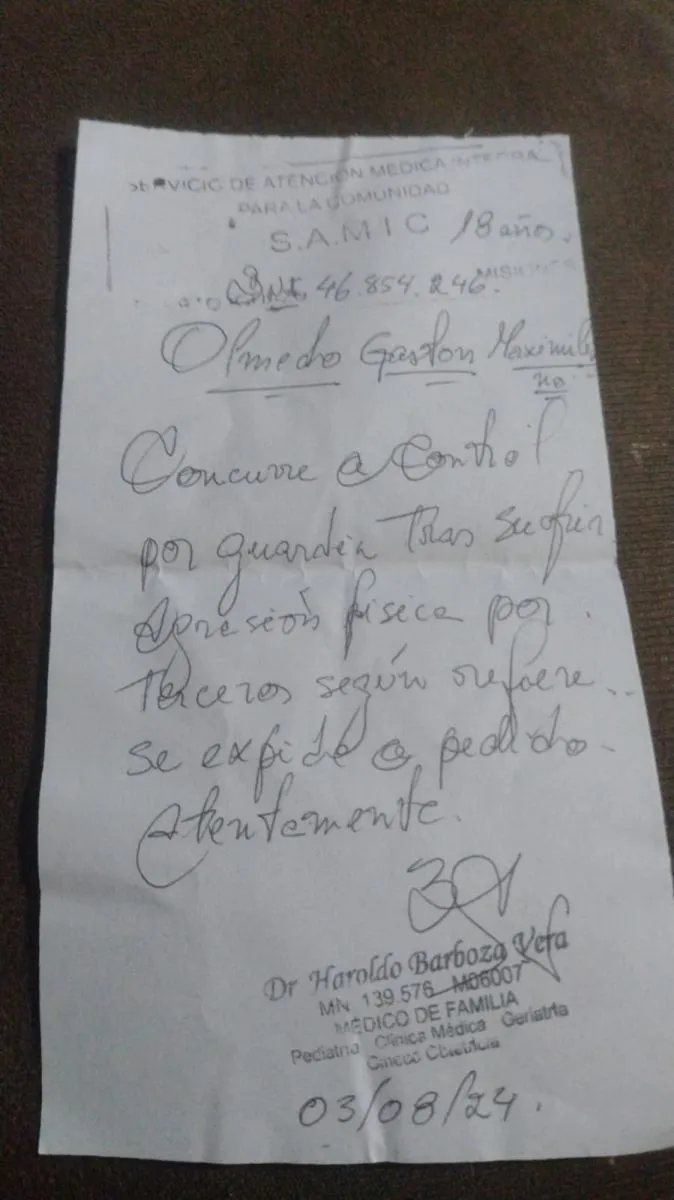 SERVICIO DE ATENCIÓN MEDICA INTEGRAL
PARA LA COMUNIDAD
S.A.M.I.C 18 años.
MISIONES
DNI. 46.854.246.
Olmedo Gaston Maximilia
no
Concurre a control
por guardia tras sufrir
agresión física por
terceros según refiere..
se expide a pedido.
Atentemente.
Dr Haroldo Barboza Vera
MN 139.576 M06007
MÉDICO DE FAMILIA
Pediatría Clínica Médica Geriatría
Gineco Obstetricia
03/08/24.